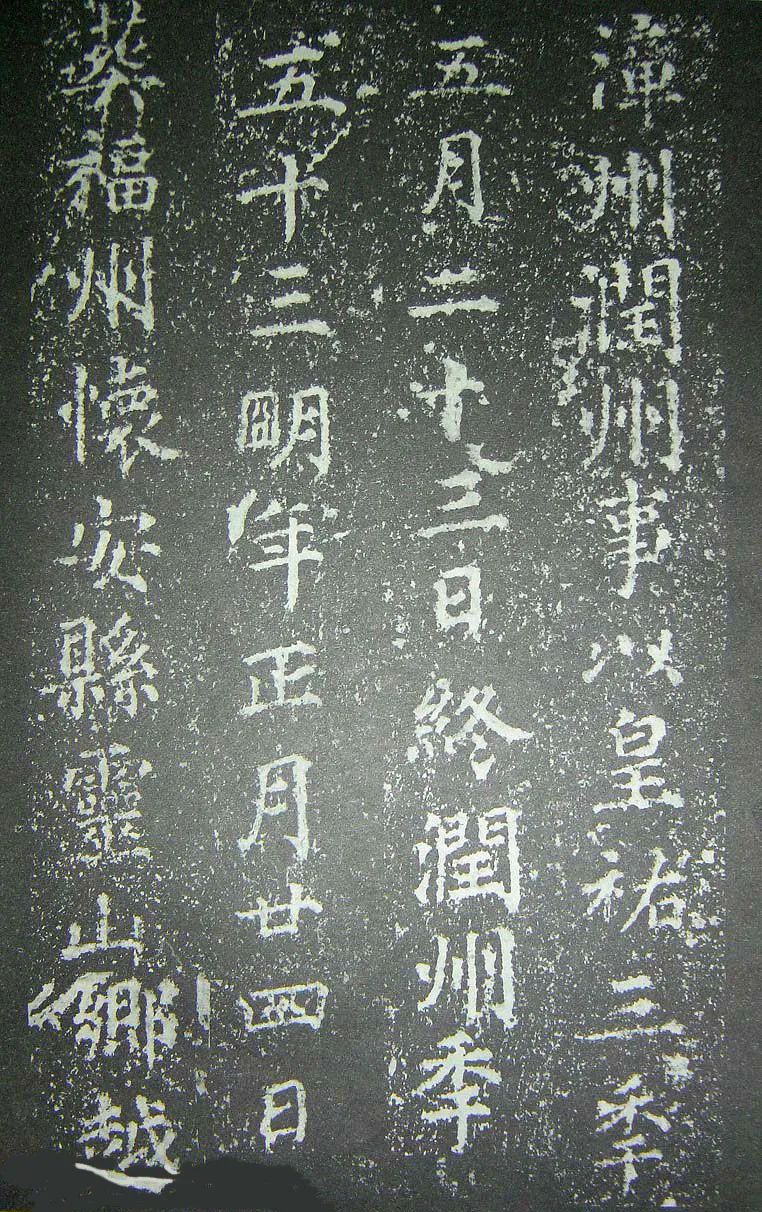 潭州潤州事以皇祐三秊
五月二十三日終潤州秊
五十三明年正月廿四日
葬福州懷安縣靈山鄉越